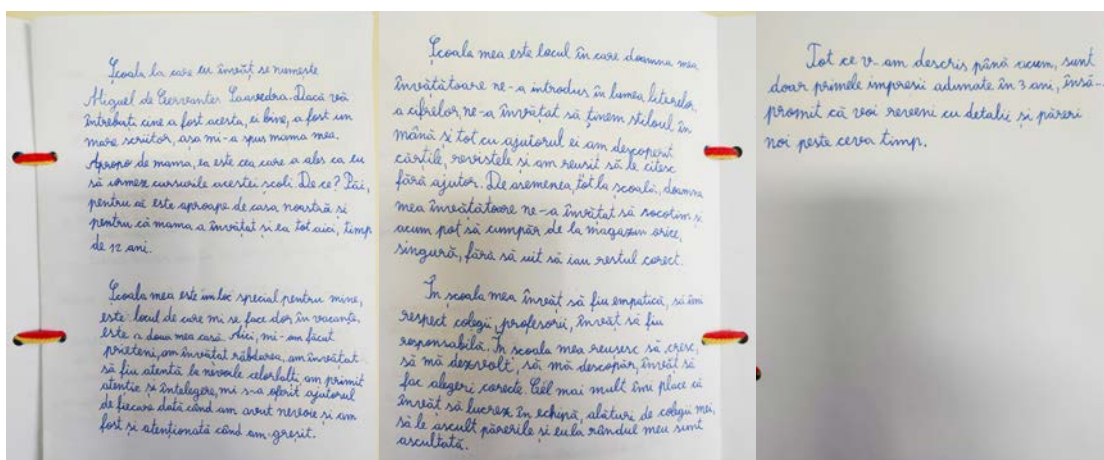 Școala la care eu învăț se numește
Miguel de Cervantes Saavedra. Dacă vă
întrebați cine a fost acesta, ei bine, a fost un
mare scriitor, așa mi-a spus mama mea.
Apropo de mama, ea este cea care a ales ca eu
să urmez cursurile acestei școli. De ce? Păi,
pentru că este aproape de casa noastră și
pentru că mama a învățat și ea tot aici, timp
de 12 ani.
Școala mea este un loc special pentru mine,
este locul de care mi se face dor în vacanțe,
este a doua mea casă. Aici, mi-am făcut
prieteni, am învățat răbdarea, am învățat
să fiu atentă la nevoile celorlalți, am primit
atenție și înțelegere, mi s-a oferit ajutorul
de fiecare dată când am avut nevoie și am
fost și atenționată când am greșit.
Școala mea este locul în care doamna mea
învățătoare ne-a introdus în lumea literelor,
a cifrelor, ne-a învățat să ținem stiloul în
mână și tot cu ajutorul ei am descoperit
cărțile, revistele și am reușit să le citesc
fără ajutor. De asemenea, tot la școală, doamna
mea învățătoare ne-a învățat să socotim și
acum pot să cumpăr de la magazin orice,
singură, fără să uit să iau restul corect.
În școala mea învăț să fiu empatică, să îmi
respect colegii, profesorii, învăț să fiu
responsabilă. În școala mea reușesc să cresc,
să mă dezvolt, să mă descopăr, învăț să
fac alegeri corecte. Cel mai mult îmi place că
învăț să lucrez în echipă, alături de colegii mei,
să le ascult părerile și eu la rândul meu sunt
ascultată.
Tot ce v-am descris până acum, sunt
doar primele impresii adunate în 3 ani, însă...
promit că voi reveni cu detalii și păreri
noi peste ceva timp.